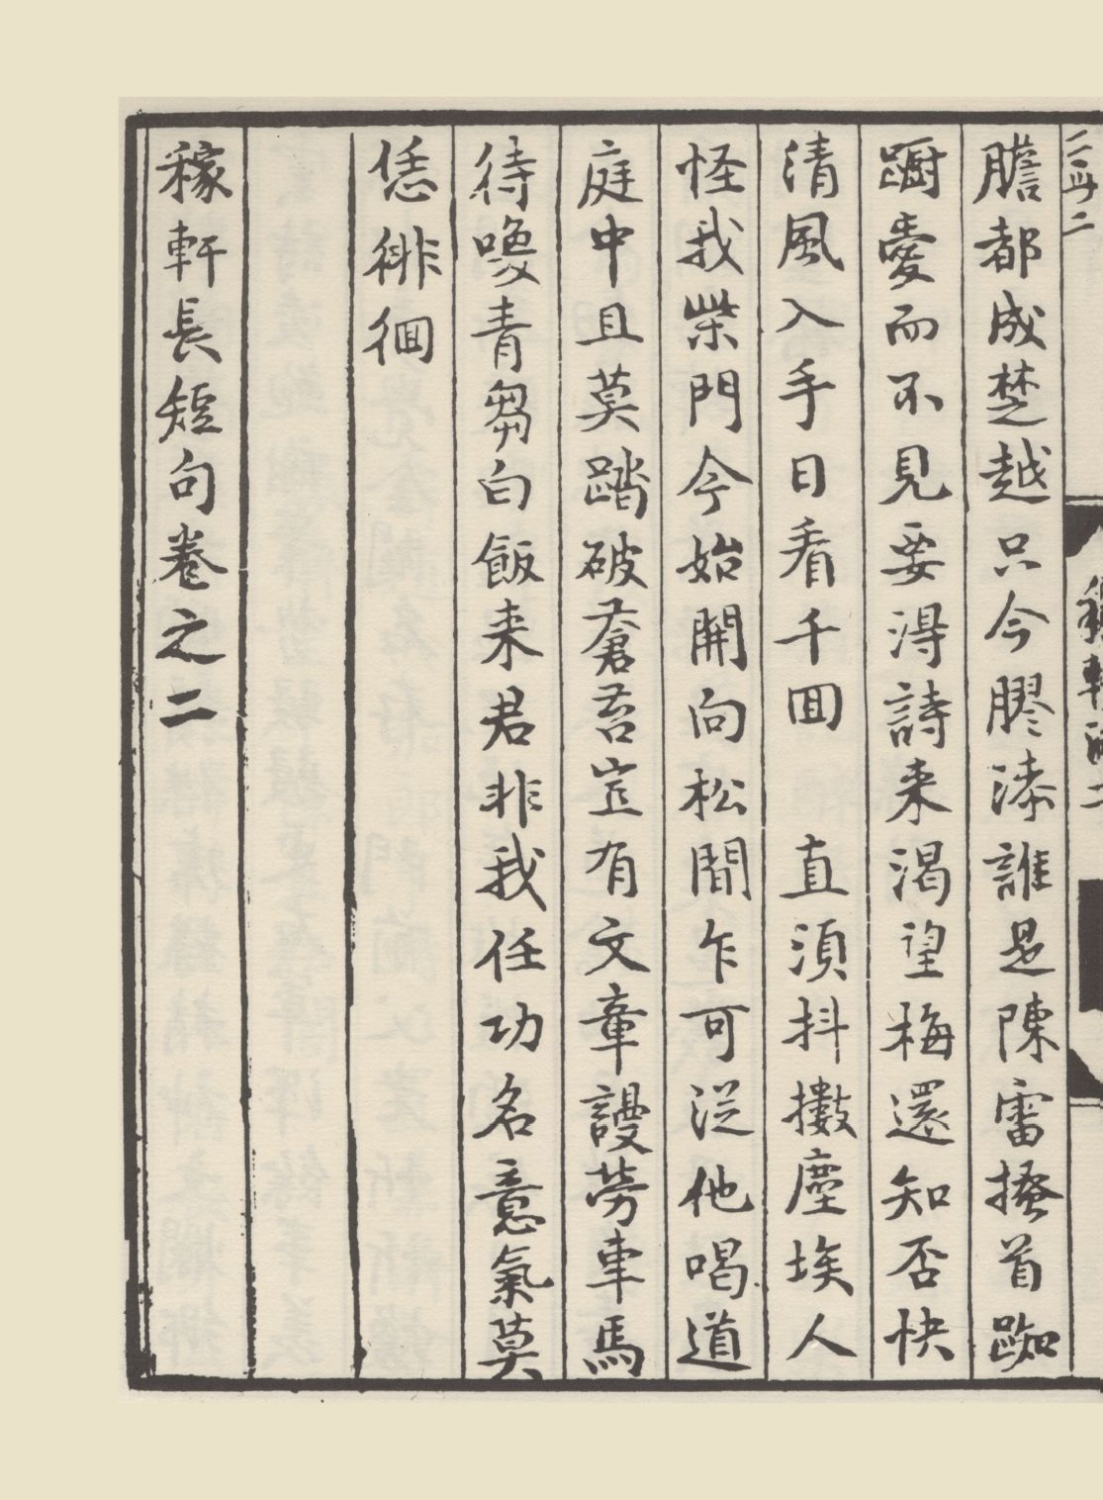 膽都成楚越只今膠漆誰是陳雷搔首踟
蹰愛而不見要得詩来渴望梅還知否快
清風入手日看千回　直須抖擻塵埃人
怪我柴門今始開向松間乍可從他喝道
庭中且莫踏破蒼苔豈有文章謾勞車馬
待喚青芻白飯来君非我任功名意氣莫
恁徘徊
稼軒長短句卷之二